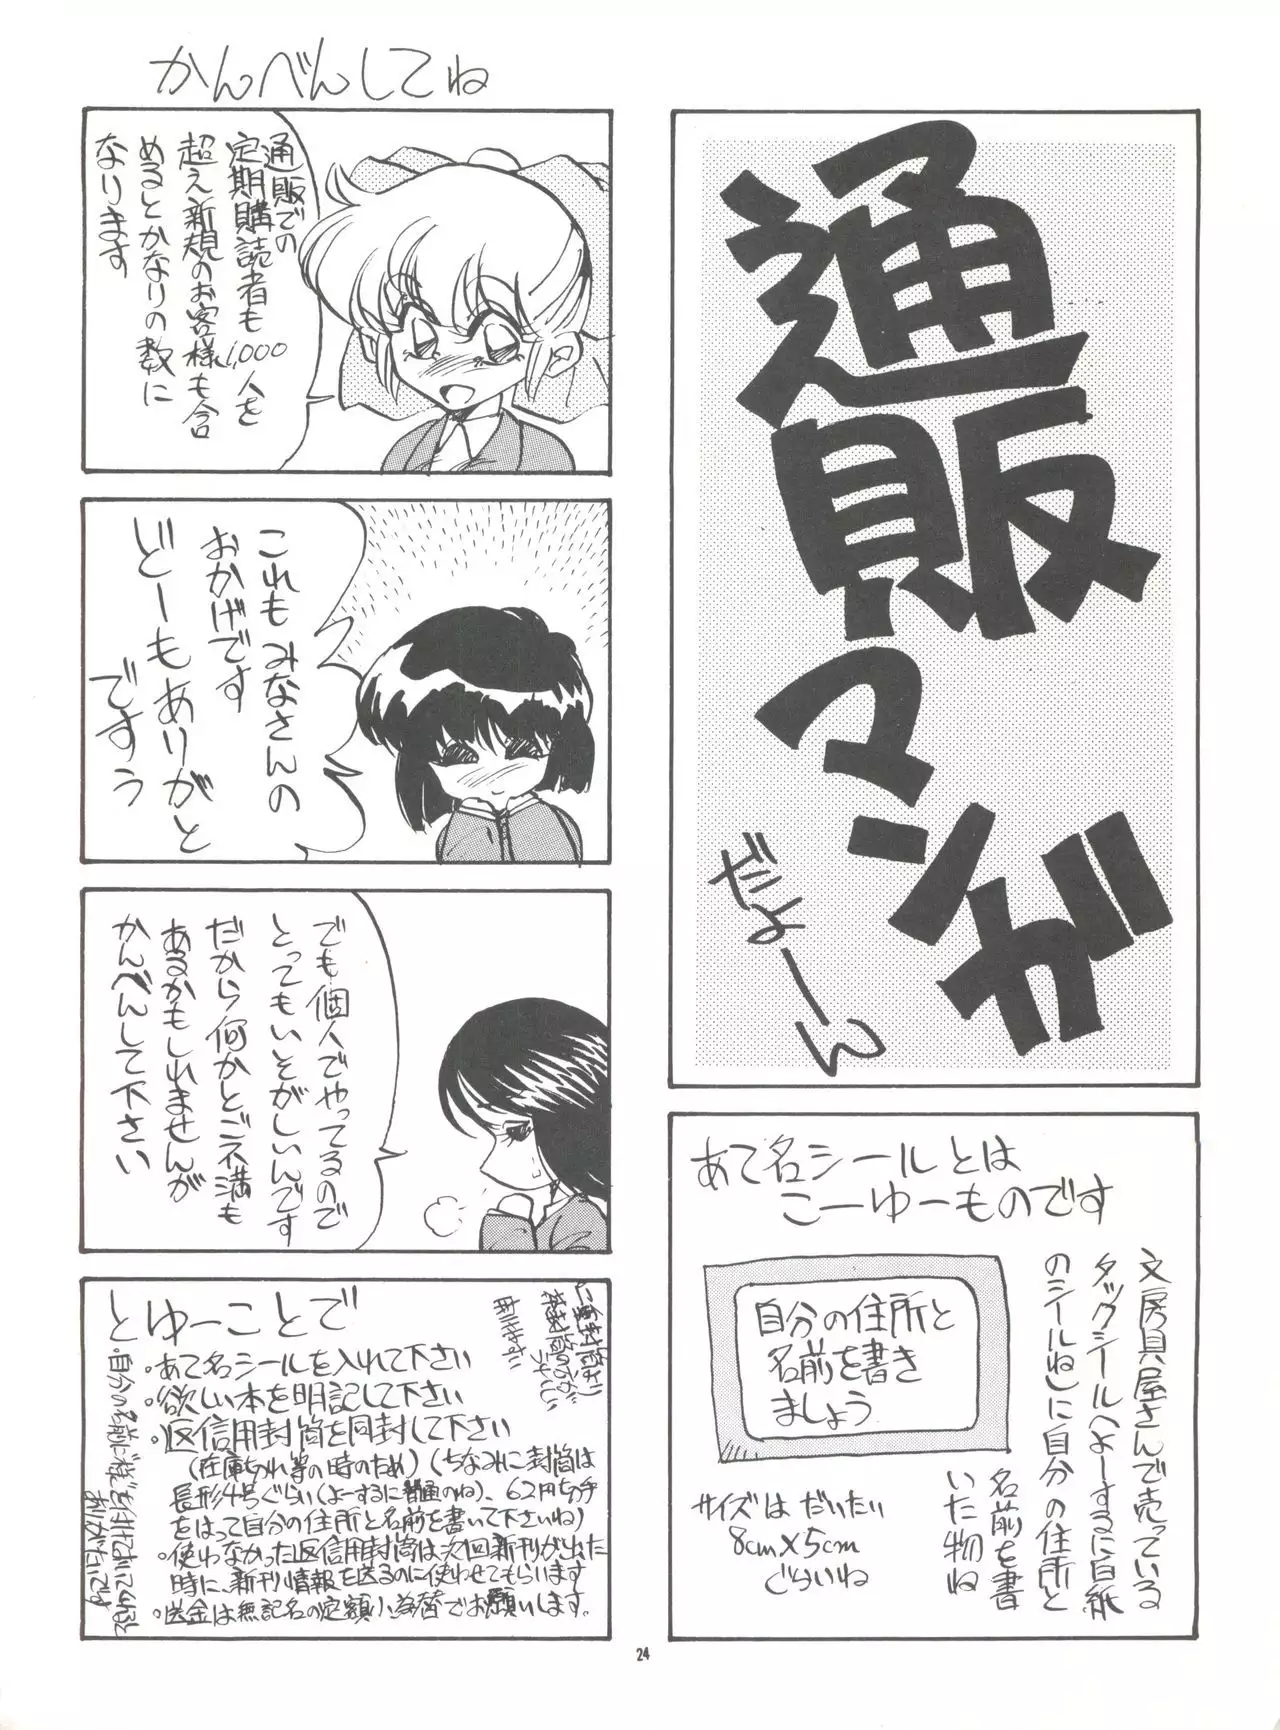 通販
マンガ
だよーん
あて名シールとは
こーゆーものです
文房具屋さんで売っている
タックシール(よーするに白紙
のシールね)に自分の住所と
名前を書
いた物ね
自分の住所と
名前を書き
ましょう
サイズは だいたい
8cm×5cm
ぐらいね
かんべんしてね
通販での
定期購読者も1,000人を
超え新規のお客様も含
めるとかなりの数に
なります
これも みなさんの
おかげです
どーもありがと
ですう
でも個人でやってるので
とってもいそがしいんです
だから何かとご不満も
あるかもしれませんが
かんべんして下さい
とゆーことで
・あて名シールを入れて下さい
・欲しい本を明記して下さい
・返信用封筒を同封して下さい
(在庫切れ等の時のため)(ちなみに封筒は
長形4号ぐらい(よーするに普通のね)、62円切手
をはって自分の住所と名前を書いて下さいね)
・使わなかった返信用封筒は次回新刊が出た
時に、新刊情報を送るのに使わせてもらいます
・送金は無記名の定額小為替でお願いします。
・自分の名前に様をつけておいてくれると
ありがたいです